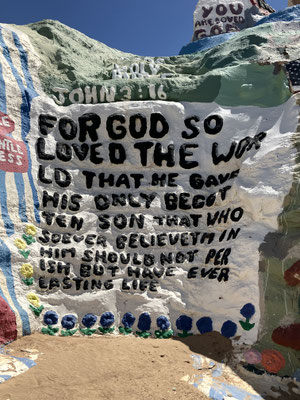 YOU
ARE LOVED
GOD
HOLY
JOHN 3:16
FOR GOD SO
LOVED THE WOR
LD THAT HE GAVE
HIS ONLY BEGOT
TEN SON THAT WHO
SOEVER BELIEVETH IN
HIM SHOULD NOT PER
ISH, BUT HAVE EVER
LASTING LIFE